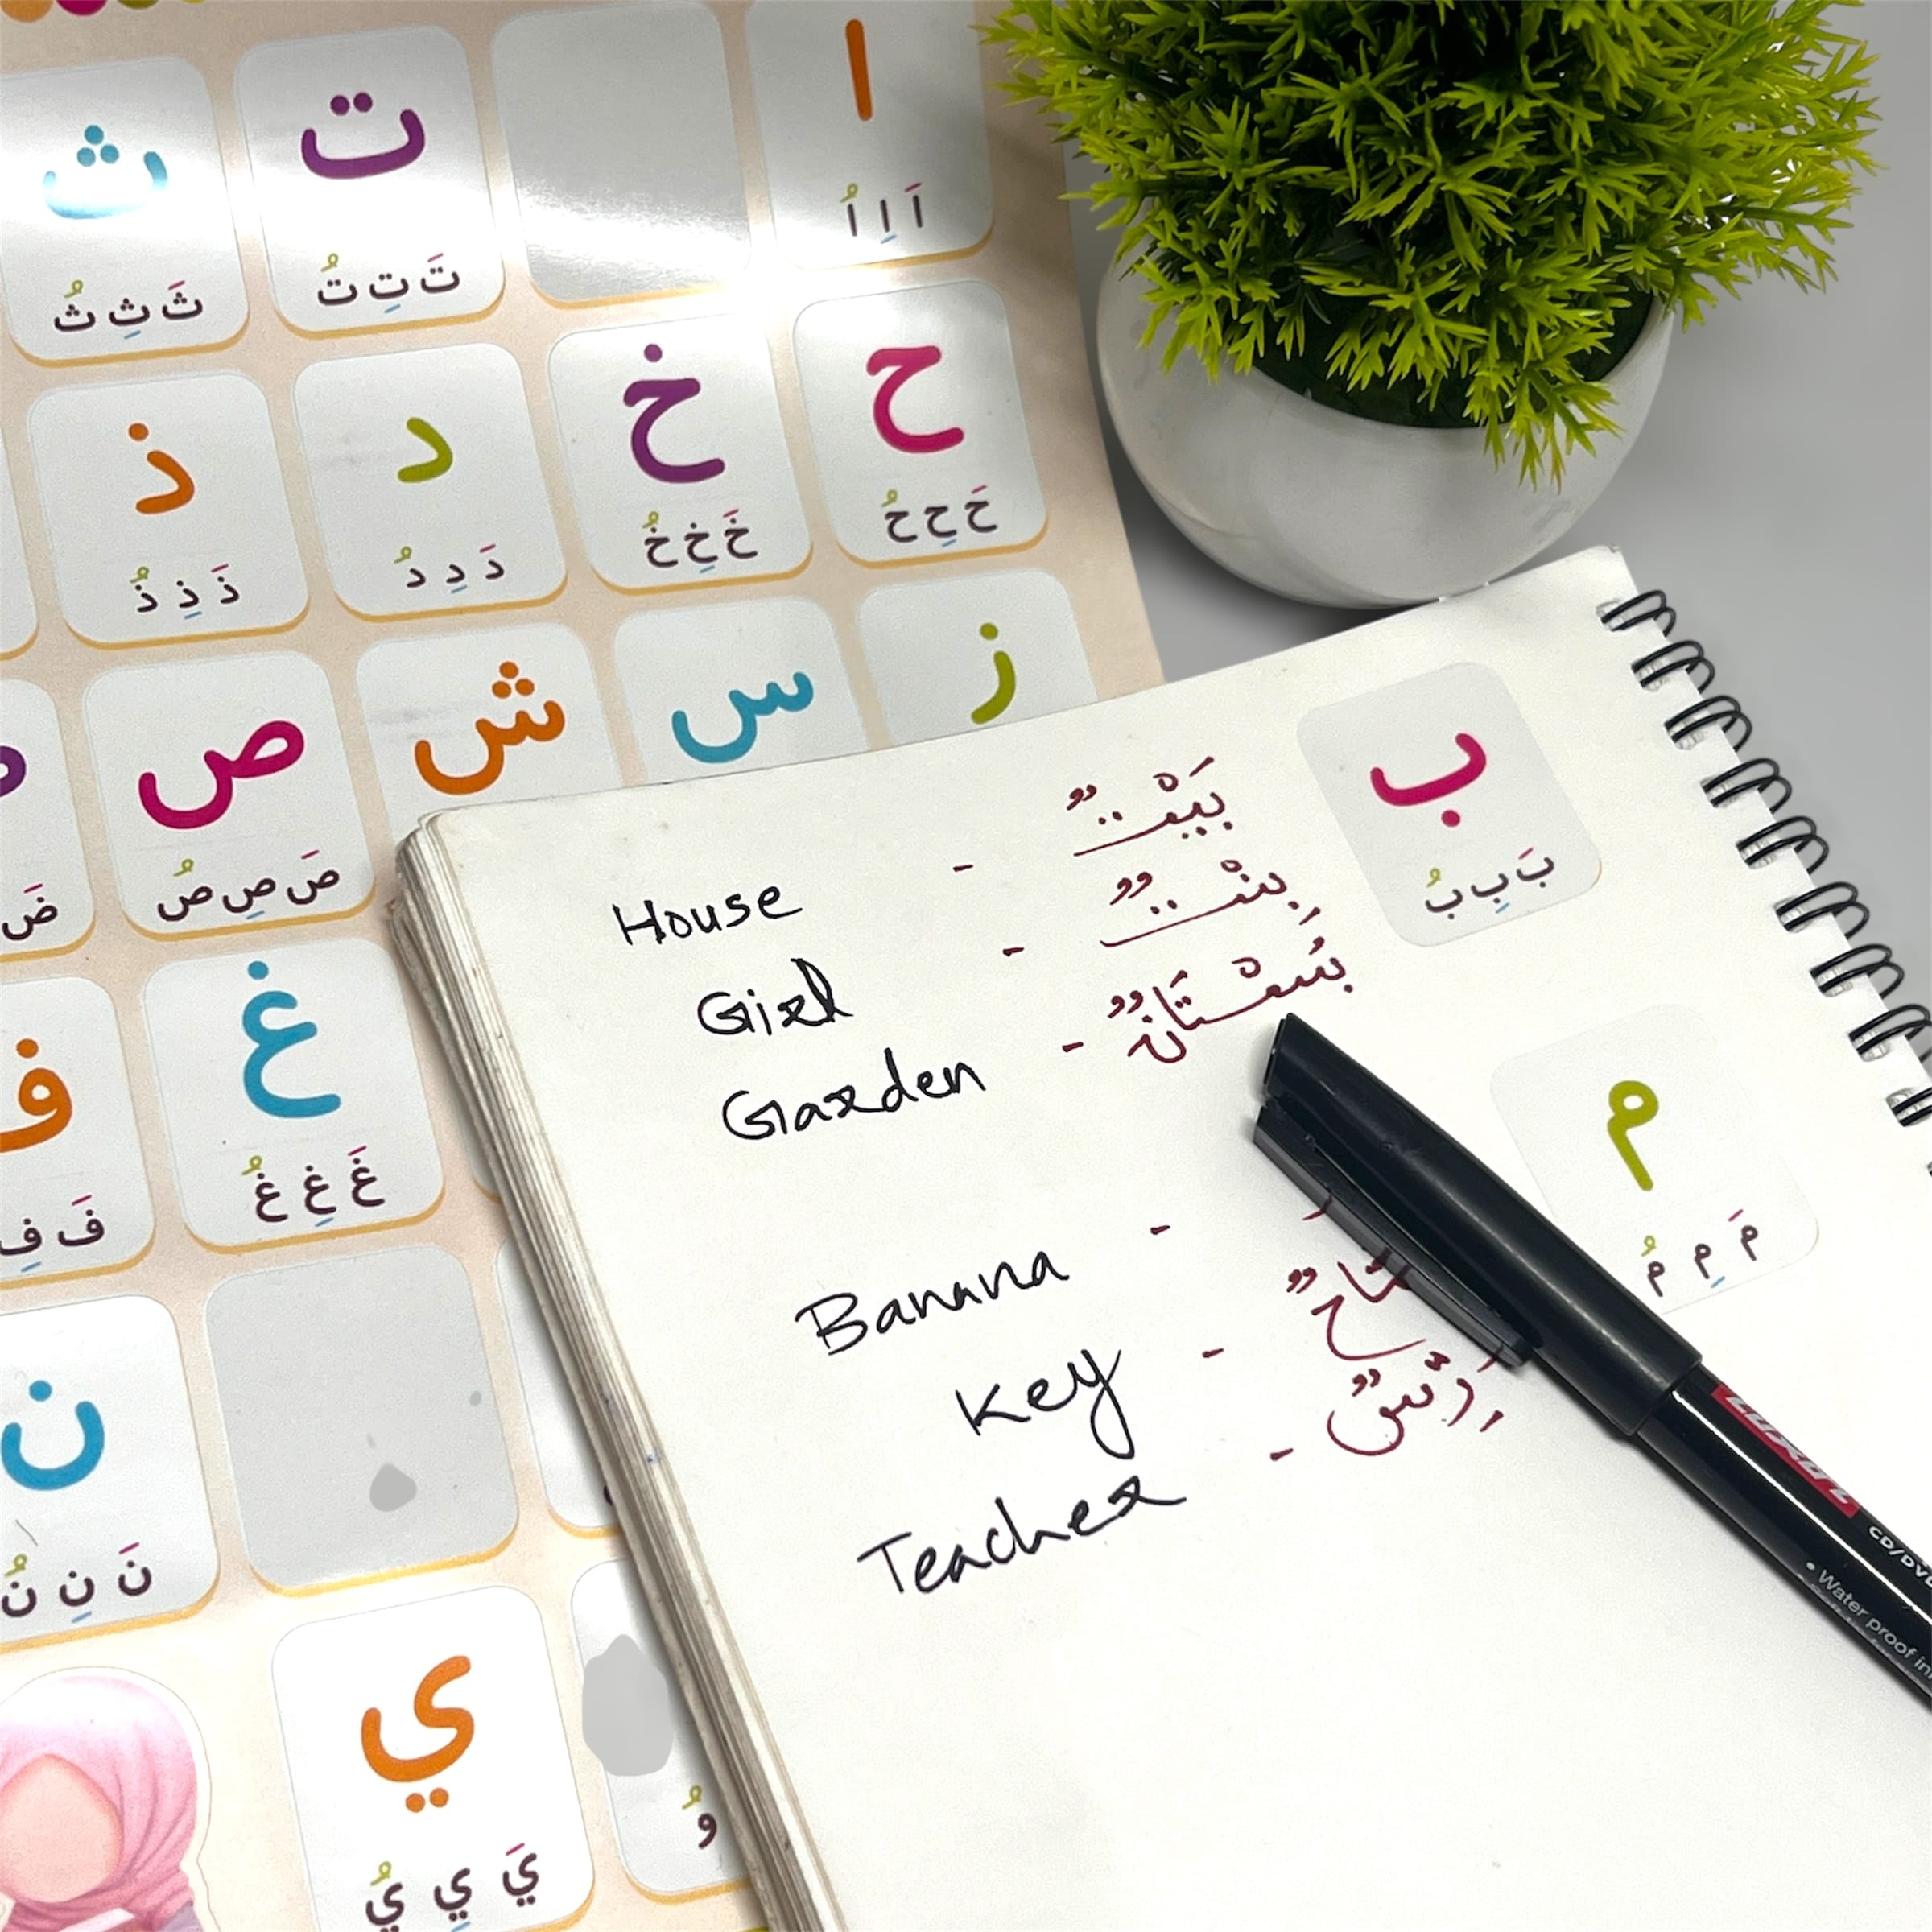 ا ت ث
اَ اِ اُ
تَ تِ تُ
ثَ ثِ ثُ
ح خ د ذ
حَ حِ حُ
خَ خِ خُ
دَ دِ دُ
ذَ ذِ ذُ
ز س ش ص
صَ صِ صُ
ضَ
غ ف
غَ غِ غُ
فَ فِ
ن
نَ نِ نُ
ي
يَ يِ يُ
وُ
ب
بَ بِ بُ
House - بَيْتٌ
Girl - بِنْتٌ
Garden - بُسْتَانٌ
م
مَ مِ مُ
Banana -
Key -
Teacher -
CD/DVD
• Water proof ink